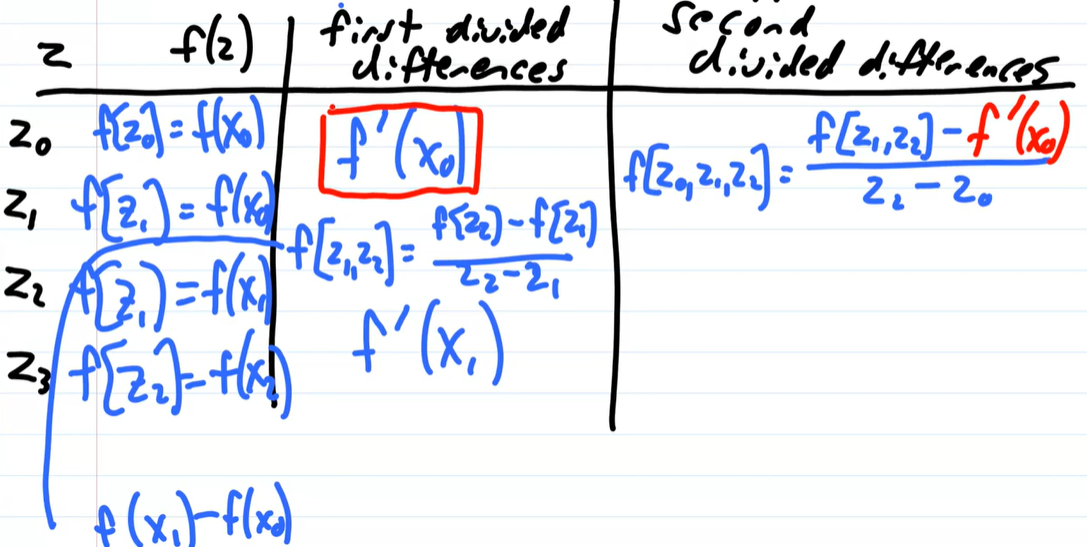 z f(z) first divided differences second divided differences
z₀ f[z₀] = f(x₀) f'(x₀) f[z₀,z₁,z₂] = (f[z₁,z₂] - f'(x₀)) / (z₂ - z₀)
z₁ f[z₁] = f(x₀) f[z₁,z₂] = (f[z₂] - f[z₁]) / (z₂ - z₁)
z₂ f[z₁] = f(x₁) f'(x₁)
z₃ f[z₂] = f(x₂)
f(x₁) - f(x₀)